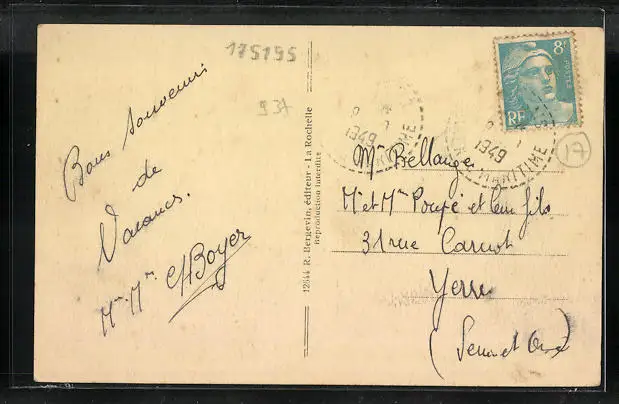 175195
937
Bons Souvenirs
de
Vacances.
Mr. Mme. Boyer
12844 R. Bergevin, éditeur - La Rochelle
Reproduction interdite
8F
POSTES
RF
1949
MARITIME
1949
MARITIME
17
Mme Bellanger
Mr et Mme Poupé et leur fils
31 rue Carnot
Yerre
(Seine et Oise)